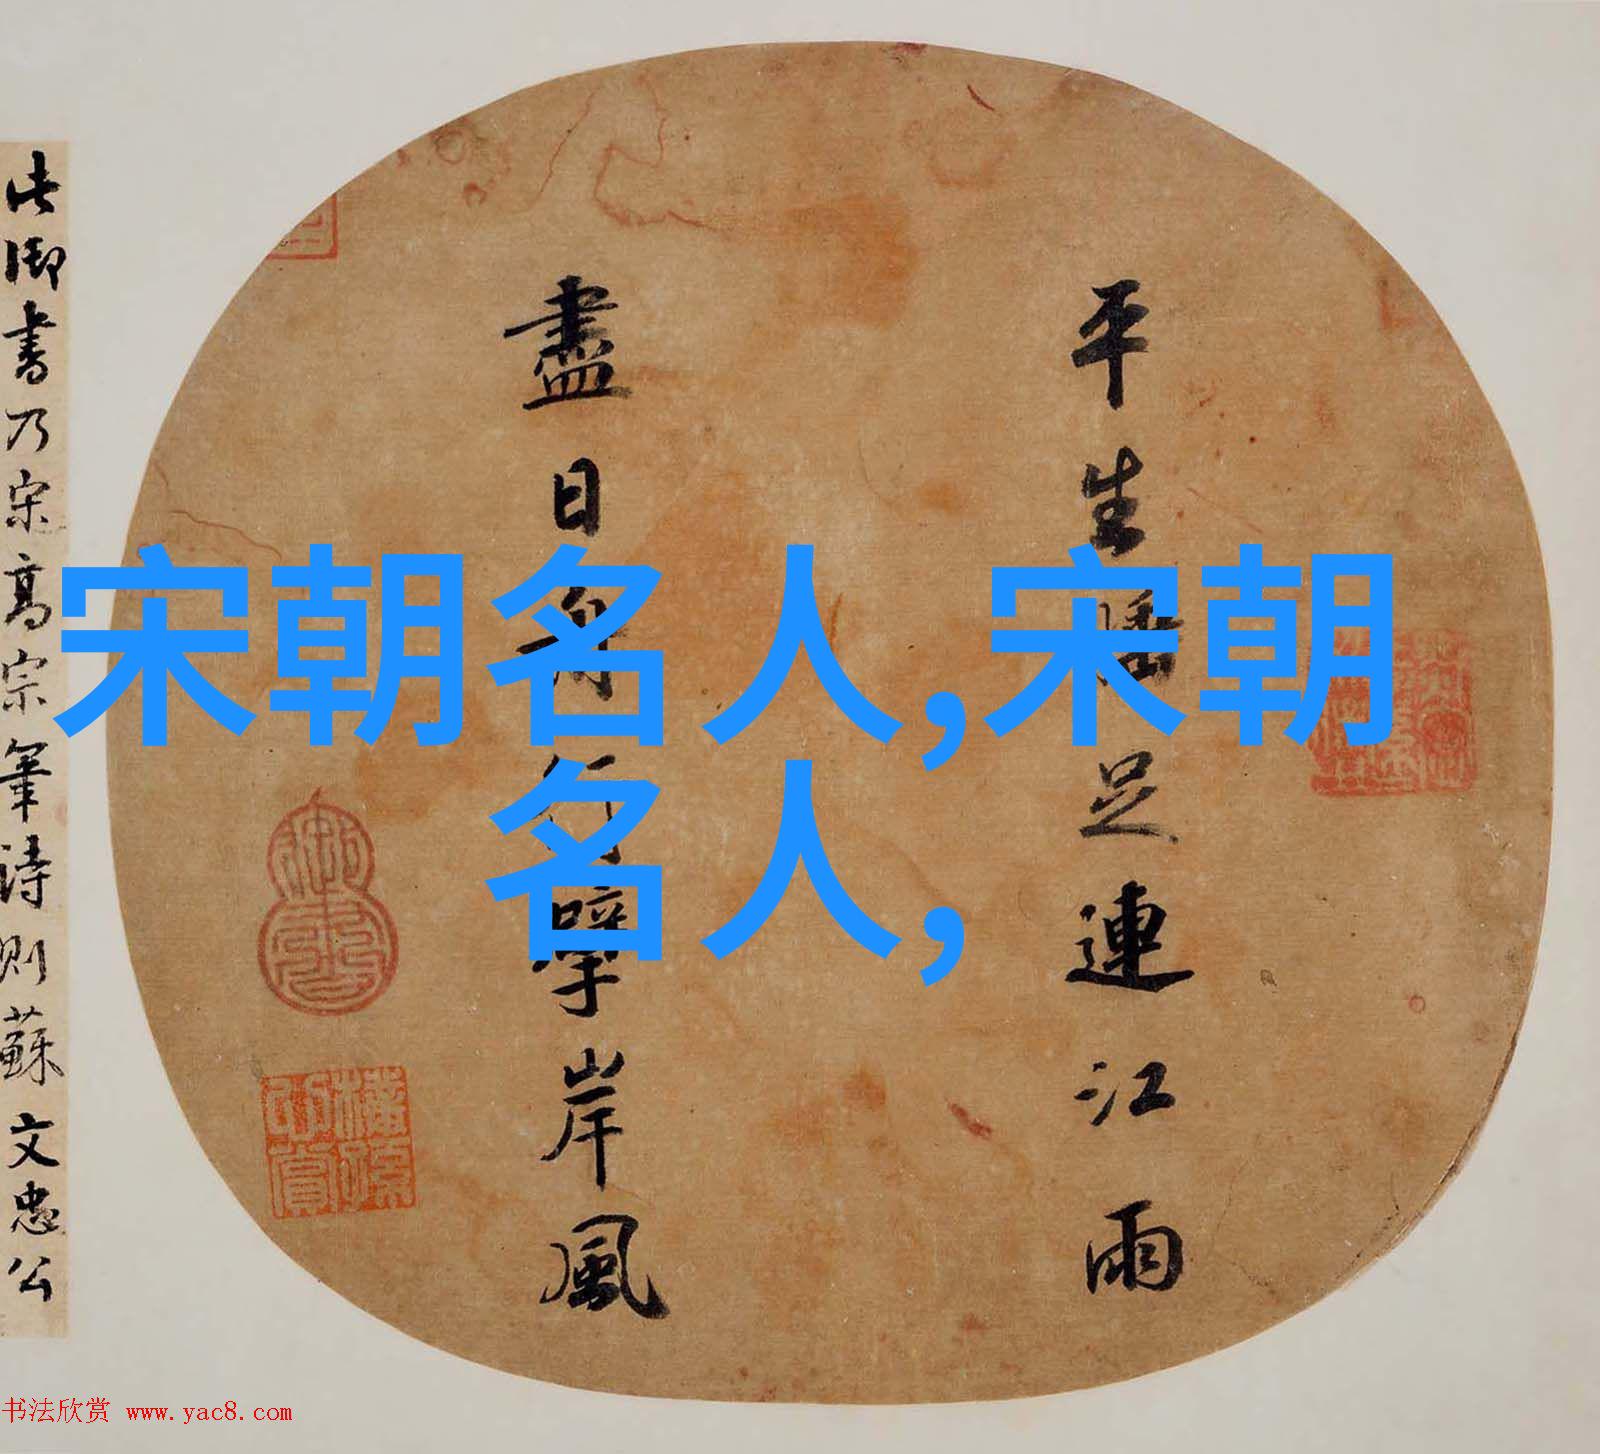 宋朝名人,宋朝
名人,
平生睡足連江雨
盡日舟擘岸風
此御書乃宋高宗筆詩則蘇文忠公
御書
书法欣赏 www.yac8.com